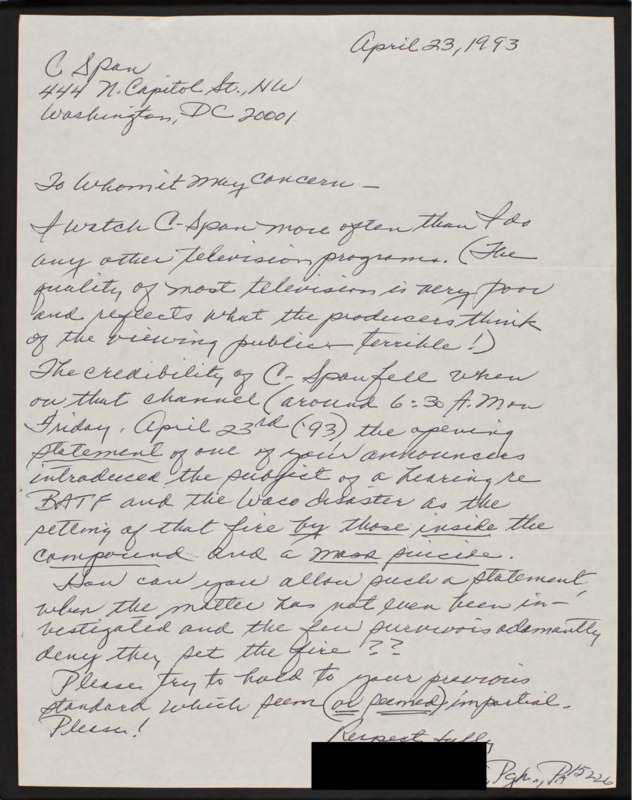 April 23, 1993
C Span
444 N. Capitol St., NW
Washington, DC 20001
To Whom it May Concern -
I watch C-Span more often than I do
any other television programs. (The
quality of most television is very poor
and reflects what the producers think
of the viewing public - terrible!)
The credibility of C. Span fell when
on that channel (around 6:30 A.M on
Friday, April 23rd ('93) the opening
statement of one of your announcers
introduced the subject of a hearing re
BATF and the Waco disaster as the
setting of that fire by those inside the
compound and a mass suicide.
How can you allow such a statement,
when the matter has not even been in-
vestigated and the few survivors adamantly
deny they set the fire??
Please, try to hold to your previous
standard which seem (or seemed) impartial.
Please!
Respectfully
, Pgh., PA 15226